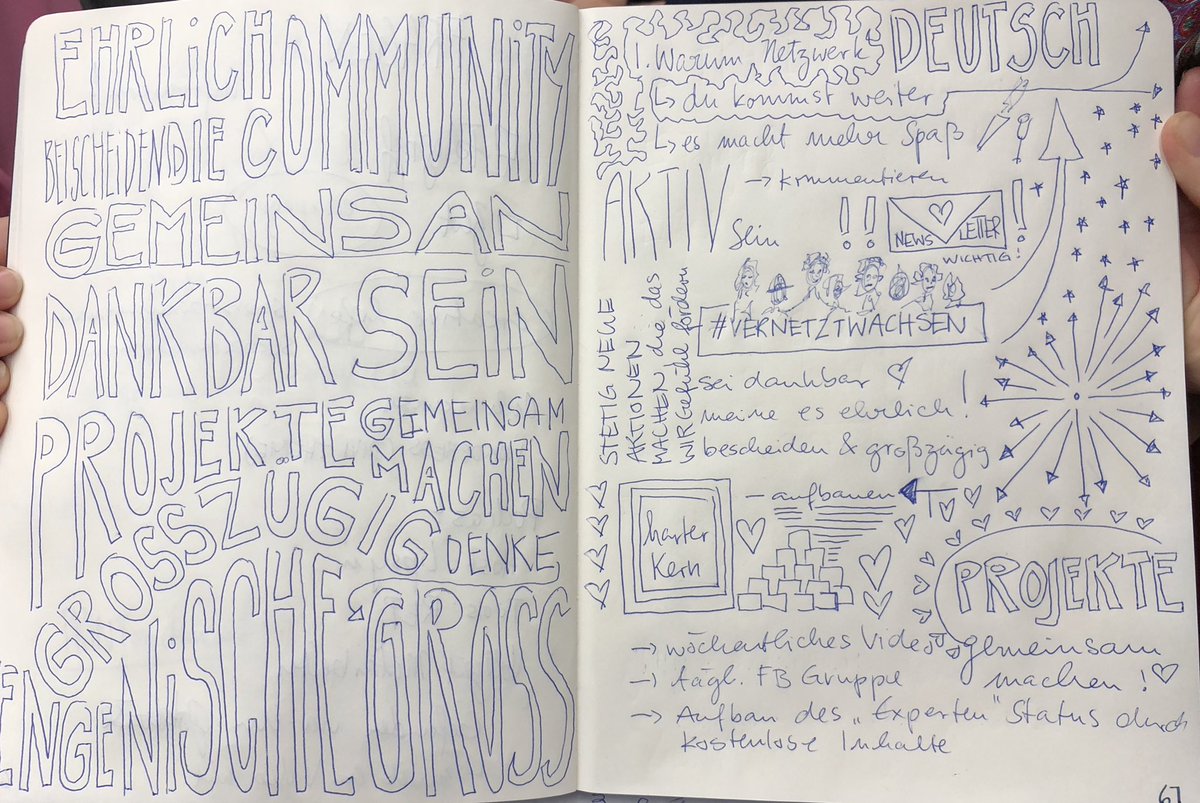 EHRLICH
DIE COMMUNITY
BEISCHEIDEND
GEMEINSAN
DANKBAR SEiN
PROJEKTE GEMEINSAM
MACHEN
GROSSZÜGIG DENKE
ENGENiSCHE GROSS
DEUTSCH
1. Warum Netzwerk
↳ du kommst weiter
↳ es macht mehr Spaß
AKTIV sein
→ kommentieren
!! NEWSLETTER !
WICHTIG!
#VERNETZTWACHSEN
STETIG NEUE
AKTIONEN
MACHEN die das
WIR Gefühl fördern
sei dankbar ♡
meine es ehrlich!
bescheiden & großzügig
harter
Kern
— aufbauen
PROJEKTE
gemeinsam
machen! ♡
→ wöchentliches Video
→ tägl. FB Gruppe
→ Aufbau des „Experten" Status durch
kostenlose Inhalte
67